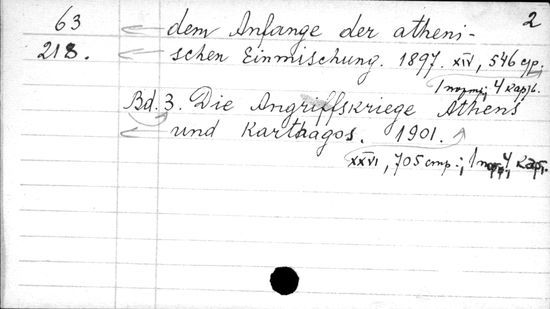 2
63 dem Anfange der atheni-
218. schen Einmischung. 1897. XIV, 546 стр.
1 портр.; 4 карт.
Bd. 3. Die Angriffskriege Athens
und Karthagos. 1901.
XXVI, 705 стр.; 1 портр.; 4 карт.